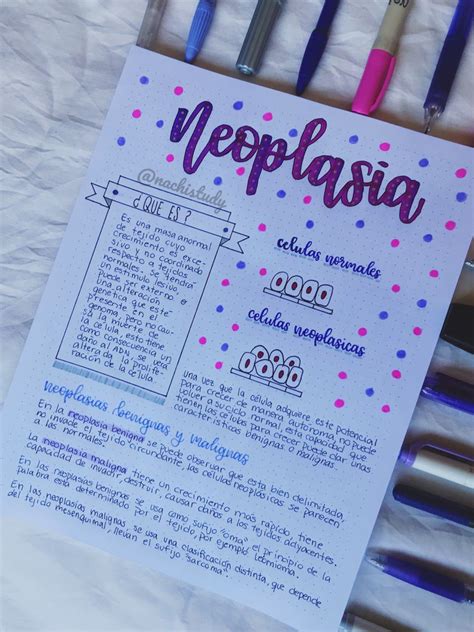 neoplasia
@nachistudy
¿QUE ES?
Es una masa anormal
de tejido cuyo
crecimiento es exce-
sivo y no coordinado
respecto a tejidos
normales. Se tendrá
un estímulo lesivo,
puede ser externo o
una alteración
genética que esté
presente en el
genoma, pero no cau-
sa la muerte de
la célula, esto tiene
como consecuencia un
daño al ADN, se verá
alterada la prolife-
ración de la célula.
celulas normales
celulas neoplasicas
una vez que la célula adquiere este potencial
para crecer de manera autónoma, no puede
volver a su ciclo normal, esta capacidad que
tienen las células para crecer puede dar unas
características benignas o malignas
neoplasias benignas y malignas
En la neoplasia benigna se puede observar que esta bien delimitada,
no invade el tejido circundante, las células neoplásicas se parecen
a las normales.
La neoplasia maligna tiene un crecimiento más rápido, tiene
capacidad de invadir, destruir, causar daños a los tejidos adyacentes.
En las neoplasias benignas se usa como sufijo "oma" el principio de la
palabra esta determinado por el tejido, por ejemplo Leomioma.
En las neoplasias malignas, se usa una clasificación distinta, que depende
del tejido mesenquimal, llevan el sufijo "sarcoma".